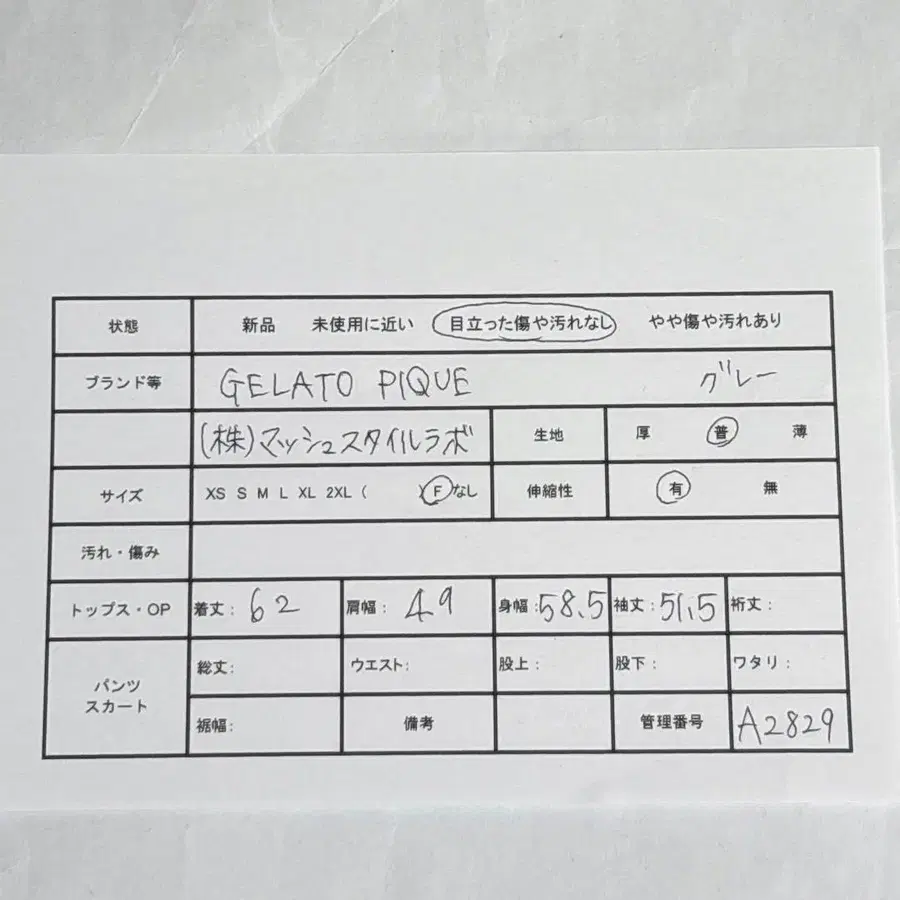 状態 新品 未使用に近い 目立った傷や汚れなし やや傷や汚れあり
ブランド等 GELATO PIQUE グレー
(株)マッシュスタイルラボ 生地 厚 普 薄
サイズ XS S M L XL 2XL ( ) F なし 伸縮性 有 無
汚れ・傷み
トップス・OP 着丈: 62 肩幅: 49 身幅: 58.5 袖丈: 51.5 裄丈:
パンツ スカート 総丈: ウエスト: 股上: 股下: ワタリ:
裾幅: 備考 管理番号 A2829